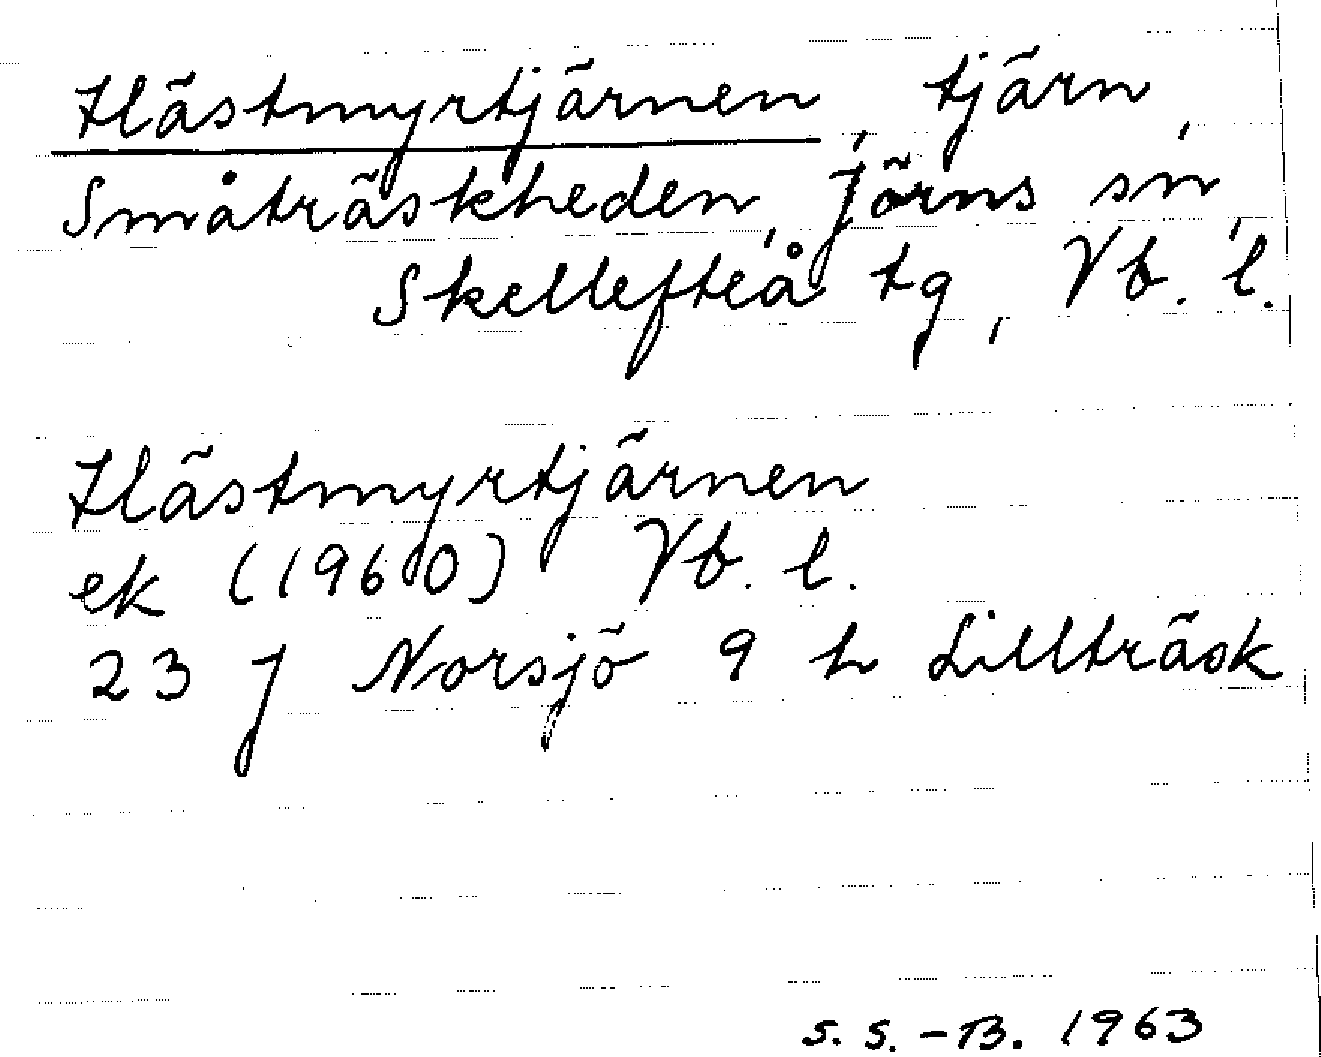 Hästmyrtjärnen, tjärn,
Småträskheden, Jörns sn,
Skellefteå tg, Vb. l.
Hästmyrtjärnen
ek (1960) Vb. l.
23 J Norsjö 9 h Lillträsk
S. S. - B. 1963